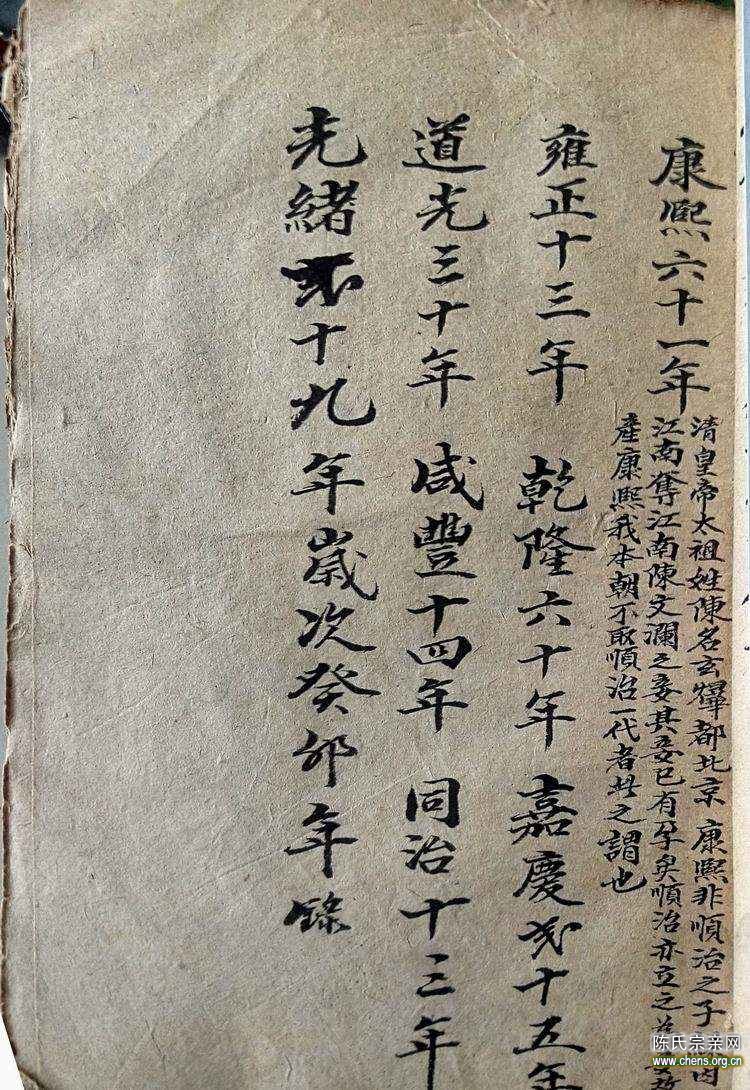 康熙六十一年
清皇帝太祖姓陳名玄燁都北京 康熙非順治之子
江南奪江南陳文瀾之妾其妾已有孕矣順治亦立之
產康熙我本朝不取順治一代者此之謂也
雍正十三年 乾隆六十年 嘉慶弍十五年
道光三十年 咸豐十四年 同治十三年
光緒 十九年歲次癸卯年錄
陈氏宗亲网
www.chens.org.cn